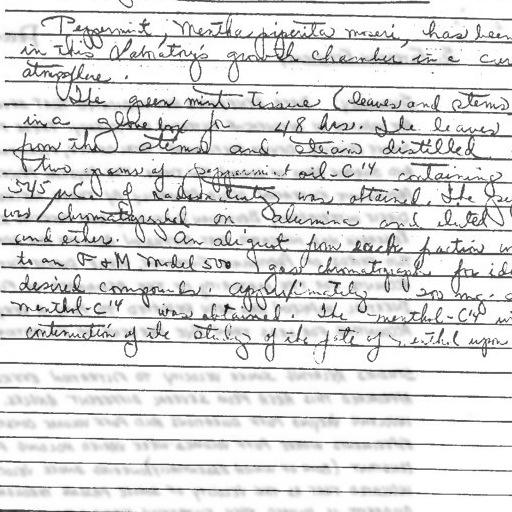 Peppermint, Mentha piperita moseri, has been
in this Laboratory's growth chamber in a
atmosphere.
The green mint tissue (leaves and stems
in a glove box for 48 hrs. The leaves
from the stems and steam distilled
Two grams of peppermint oil-C14 containing
545 µC. of radioactivity was obtained. The
was chromatographed on alumina and eluted
and ether. An aliquot from each fraction
to an F & M Model 500 gas chromatograph for
desired compounds. Approximately 200 mg.
menthol-C14 was obtained. The menthol-C14
continuation of the study of the fate of menthol upon